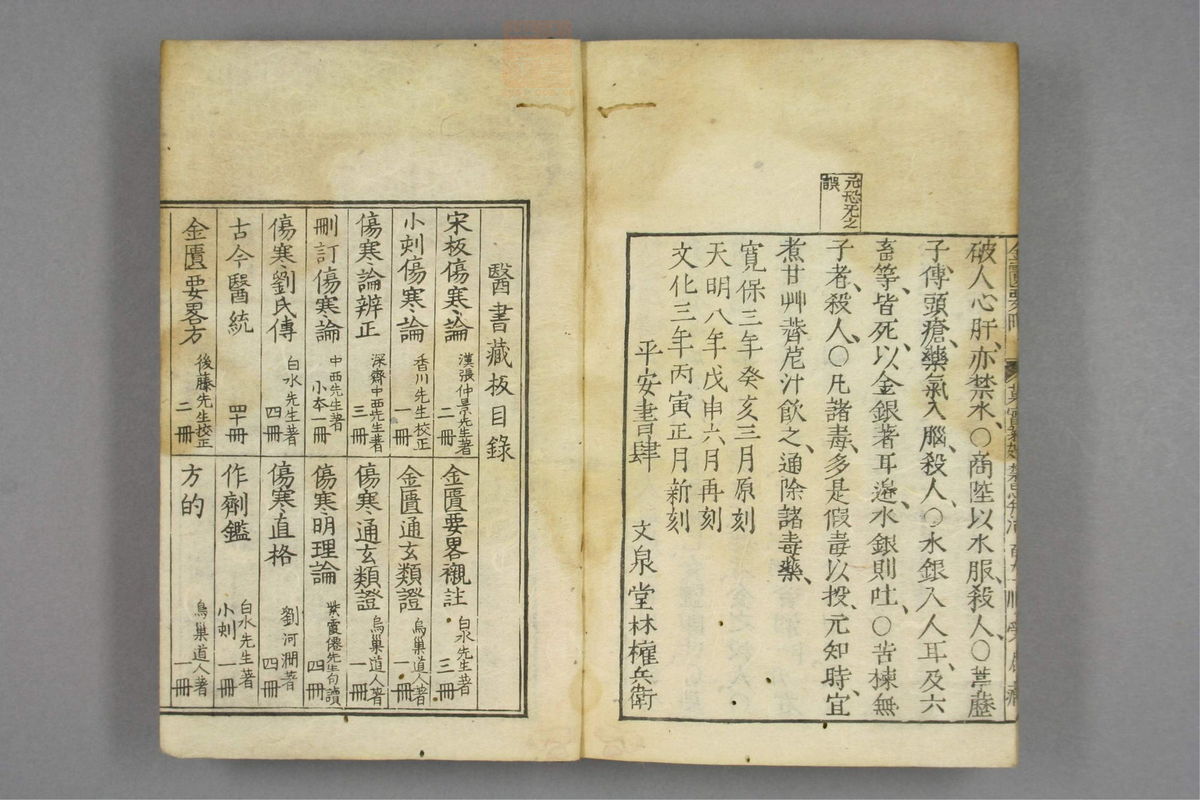 元恐无之
誤
破人心肝、亦禁水、○商陸以水服、殺人、○葶藶
子傳頭瘡、藥氣入腦、殺人、○水銀入人耳、及六
畜等、皆死、以金銀著耳邊、水銀則吐、○苦楝無
子者、殺人、○凡諸毒、多是假毒以投、元知時、宜
煮甘艸薺苨汁飲之、通除諸毒藥、
寬保三年癸亥三月原刻
天明八年戊申六月再刻
文化三年丙寅正月新刻
平安書肆 文泉堂林權兵衛
醫書藏板目錄
宋板傷寒論 漢張仲景先生著 二冊
金匱要畧襯註 白水先生著 三冊
小刻傷寒論 香川先生校正 一冊
金匱通玄類證 烏巢道人著 一冊
傷寒論辨正 深齋中西先生著 三冊
傷寒通玄類證 烏巢道人著 一冊
刪訂傷寒論 中西先生著 小本一冊
傷寒明理論 紫霞僊先生句讀 四冊
傷寒劉氏傳 白水先生著 四冊
傷寒直格 劉河澗著 四冊
古今醫統 四十冊
作劑鑑 白水先生著 小刻 一冊
金匱要畧方 後藤先生校正 二冊
方的 烏巢道人著 一冊